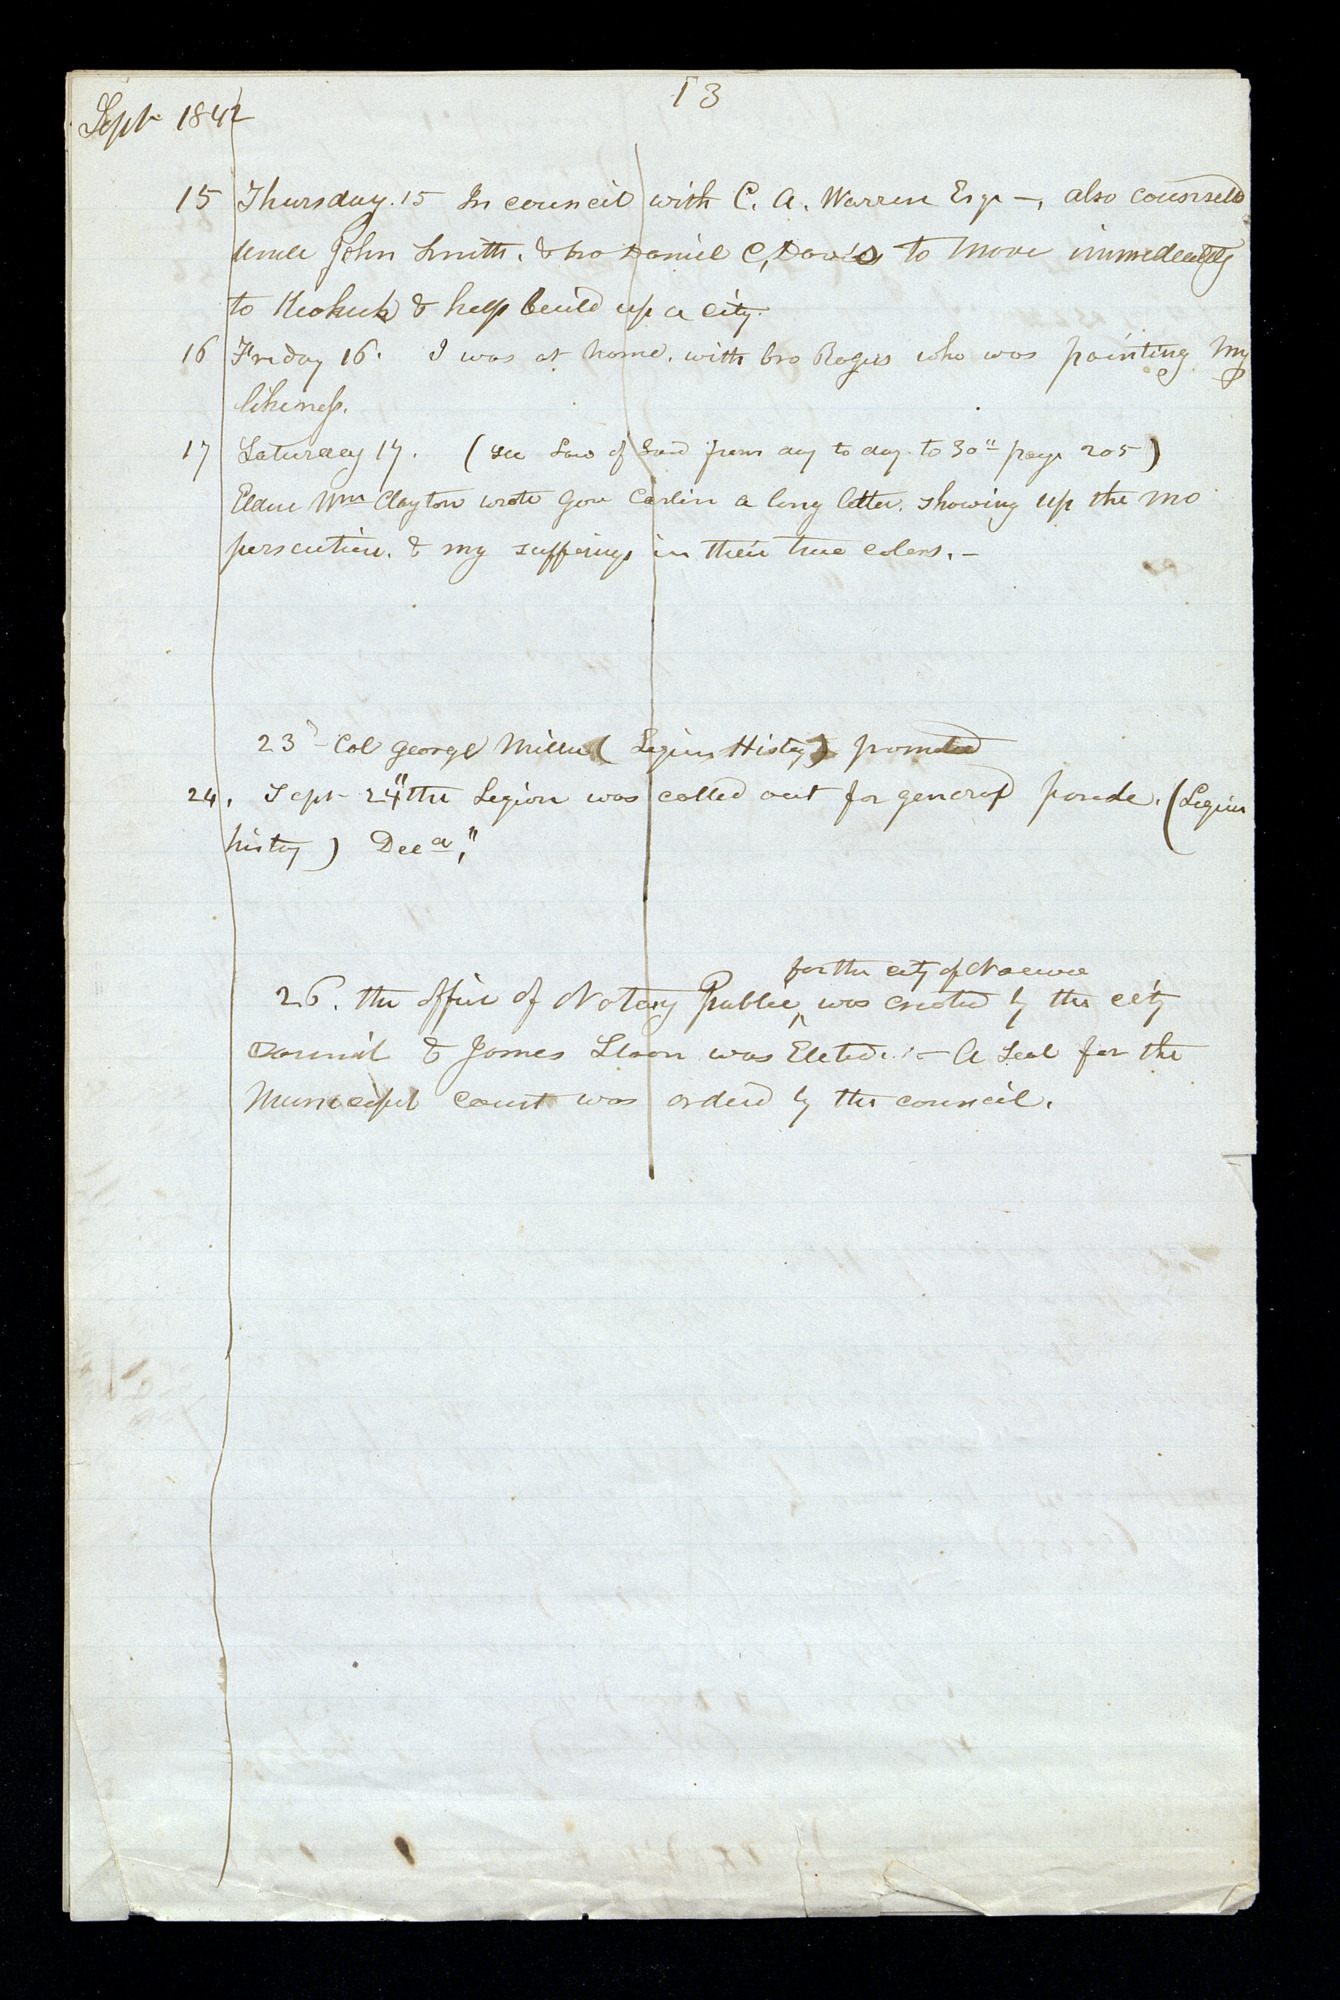 13
Sept 1842
15 Thursday. 15 In council with C. A. Warren Esqr —, also counseld
uncle John Smith. & bro Daniel C, Davis to move immediately
to Keokuk & help build up a city.
16 Friday 16. I was at home. with bro Rogers who was painting my
likeness.
17 Saturday 17. (see Law of Lord from day to day to 30" page 205)
Elder Wm Clayton wrote Gov Carlin a long letter. showing up the Mo
persecution. & my sufferings in their true colors. —
23d — Col George Miller ( Legion History ) promoted
24. Sept 24" the Legion was called out for general parade. (Legion
histry)
for the city of Nauvoo
26. the office of Notary Public ^ was created by the city
Council & James Sloan was Elected. — A seal for the
Municipal Court was orderd by the council.